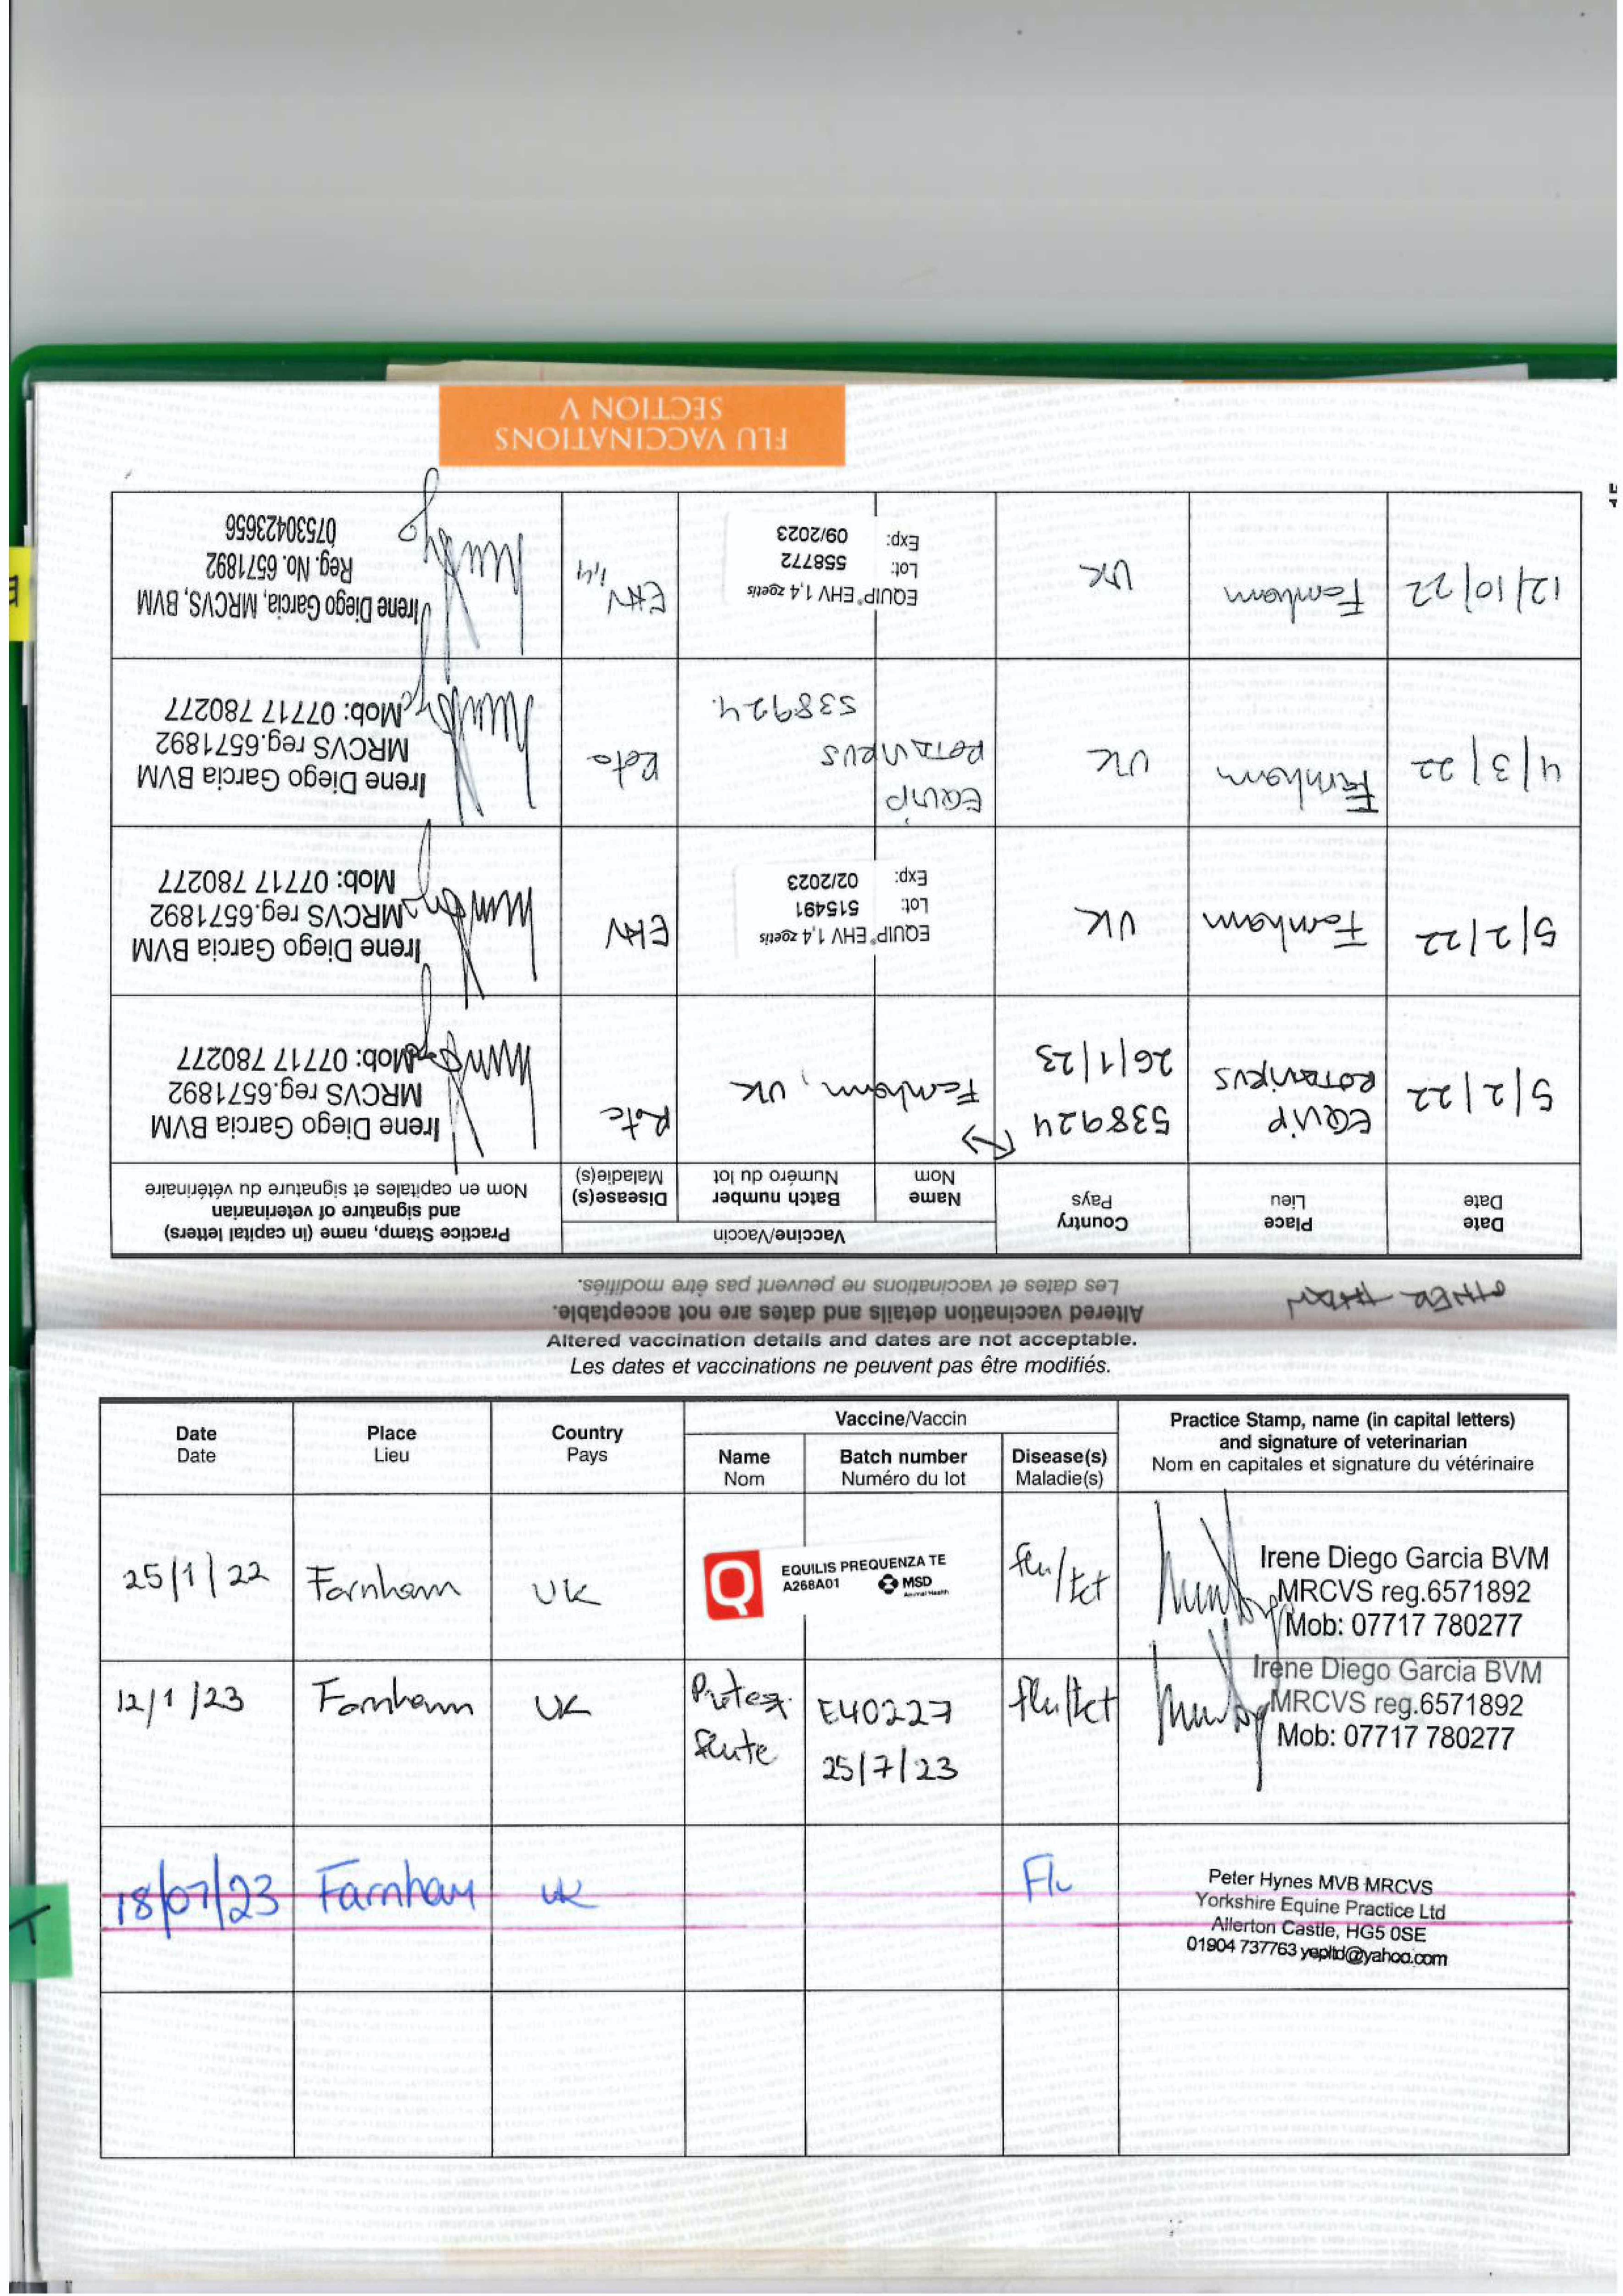 FLU VACCINATIONS
SECTION V
OTHER THAN
Altered vaccination details and dates are not acceptable.
Les dates et vaccinations ne peuvent pas être modifiés.
Date
Date
Place
Lieu
Country
Pays
Vaccine/Vaccin
Name
Nom
Batch number
Numéro du lot
Disease(s)
Maladie(s)
Practice Stamp, name (in capital letters)
and signature of veterinarian
Nom en capitales et signature du vétérinaire
5/2/22
EQUIP
ROTAVIRUS
538924
26/1/23
Farnham, UK
Rota
Irene Diego Garcia BVM
MRCVS reg.6571892
Mob: 07717 780277
5/2/22
Farnham
UK
EQUIP® EHV 1,4 zoetis
Lot: 515491
Exp: 02/2023
EHV
Irene Diego Garcia BVM
MRCVS reg.6571892
Mob: 07717 780277
4/3/22
Farnham
UK
EQUIP
ROTAVIRUS
538924
Rota
Irene Diego Garcia BVM
MRCVS reg.6571892
Mob: 07717 780277
12/10/22
Farnham
UK
EQUIP® EHV 1,4 zoetis
Lot: 558772
Exp: 09/2023
EHV 1,4
Irene Diego Garcia, MRCVS, BVM
Reg. No. 6571892
07530423656
Altered vaccination details and dates are not acceptable.
Les dates et vaccinations ne peuvent pas être modifiés.
Date
Date
Place
Lieu
Country
Pays
Vaccine/Vaccin
Name
Nom
Batch number
Numéro du lot
Disease(s)
Maladie(s)
Practice Stamp, name (in capital letters)
and signature of veterinarian
Nom en capitales et signature du vétérinaire
25/1/22
Farnham
UK
Q
EQUILIS PREQUENZA TE
A268A01 MSD
Animal Health
flu/tet
Irene Diego Garcia BVM
MRCVS reg.6571892
Mob: 07717 780277
12/1/23
Farnham
UK
E40227
25/7/23
flu/tet
Irene Diego Garcia BVM
MRCVS reg.6571892
Mob: 07717 780277
18/07/23
Farnham
UK
Flu
Peter Hynes MVB MRCVS
Yorkshire Equine Practice Ltd
Allerton Castle, HG5 0SE
01904 737763 yepltd@yahoo.com